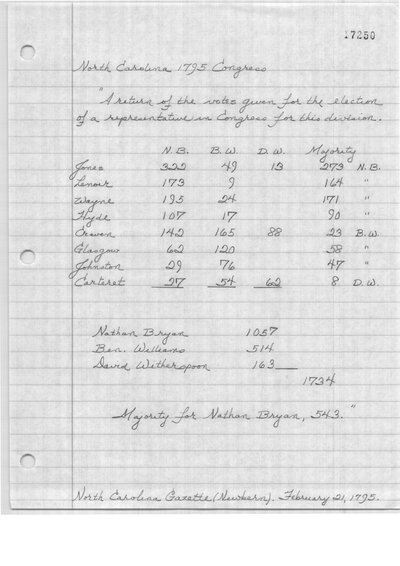 17250
North Carolina 1795 Congress
"A return of the votes given for the election
of a representative in Congress for this division.
N. B. B. W. D. W. Majority
Jones 322 49 13 273 N. B.
Lenoir 173 9 164 "
Wayne 195 24 171 "
Hyde 107 17 90 "
Craven 142 165 88 23 B. W.
Glasgow 62 120 58 "
Johnston 29 76 47 "
Carteret 27 54 62 8 D. W.
Nathan Bryan 1057
Ben. Williams 514
David Witherspoon 163
1734
Majority for Nathan Bryan, 543."
North Carolina Gazette (Newbern). February 21, 1795.